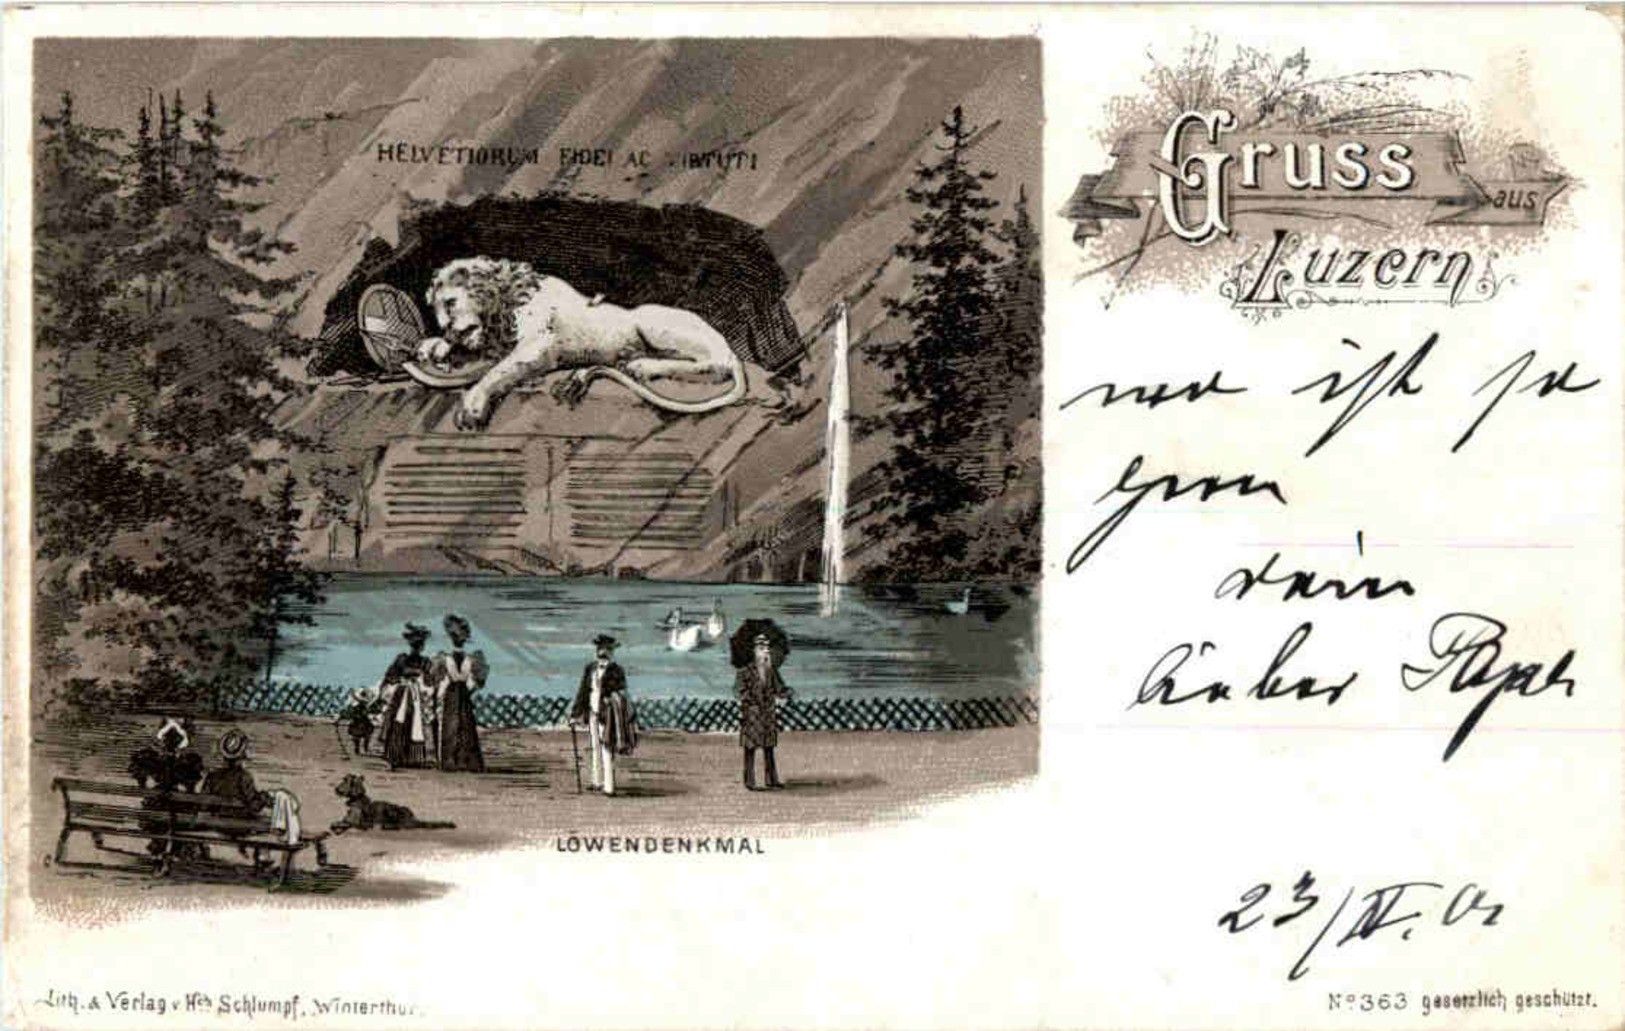 HELVETIORUM FIDEI AC VIRTUTI
Gruss
aus
Luzern
ist so
gern
dein
lieber Papa
23/IV. 01
LÖWENDENKMAL
Lith. & Verlag v Hch Schlumpf, Winterthur.
No 363 gesetzlich geschützt.